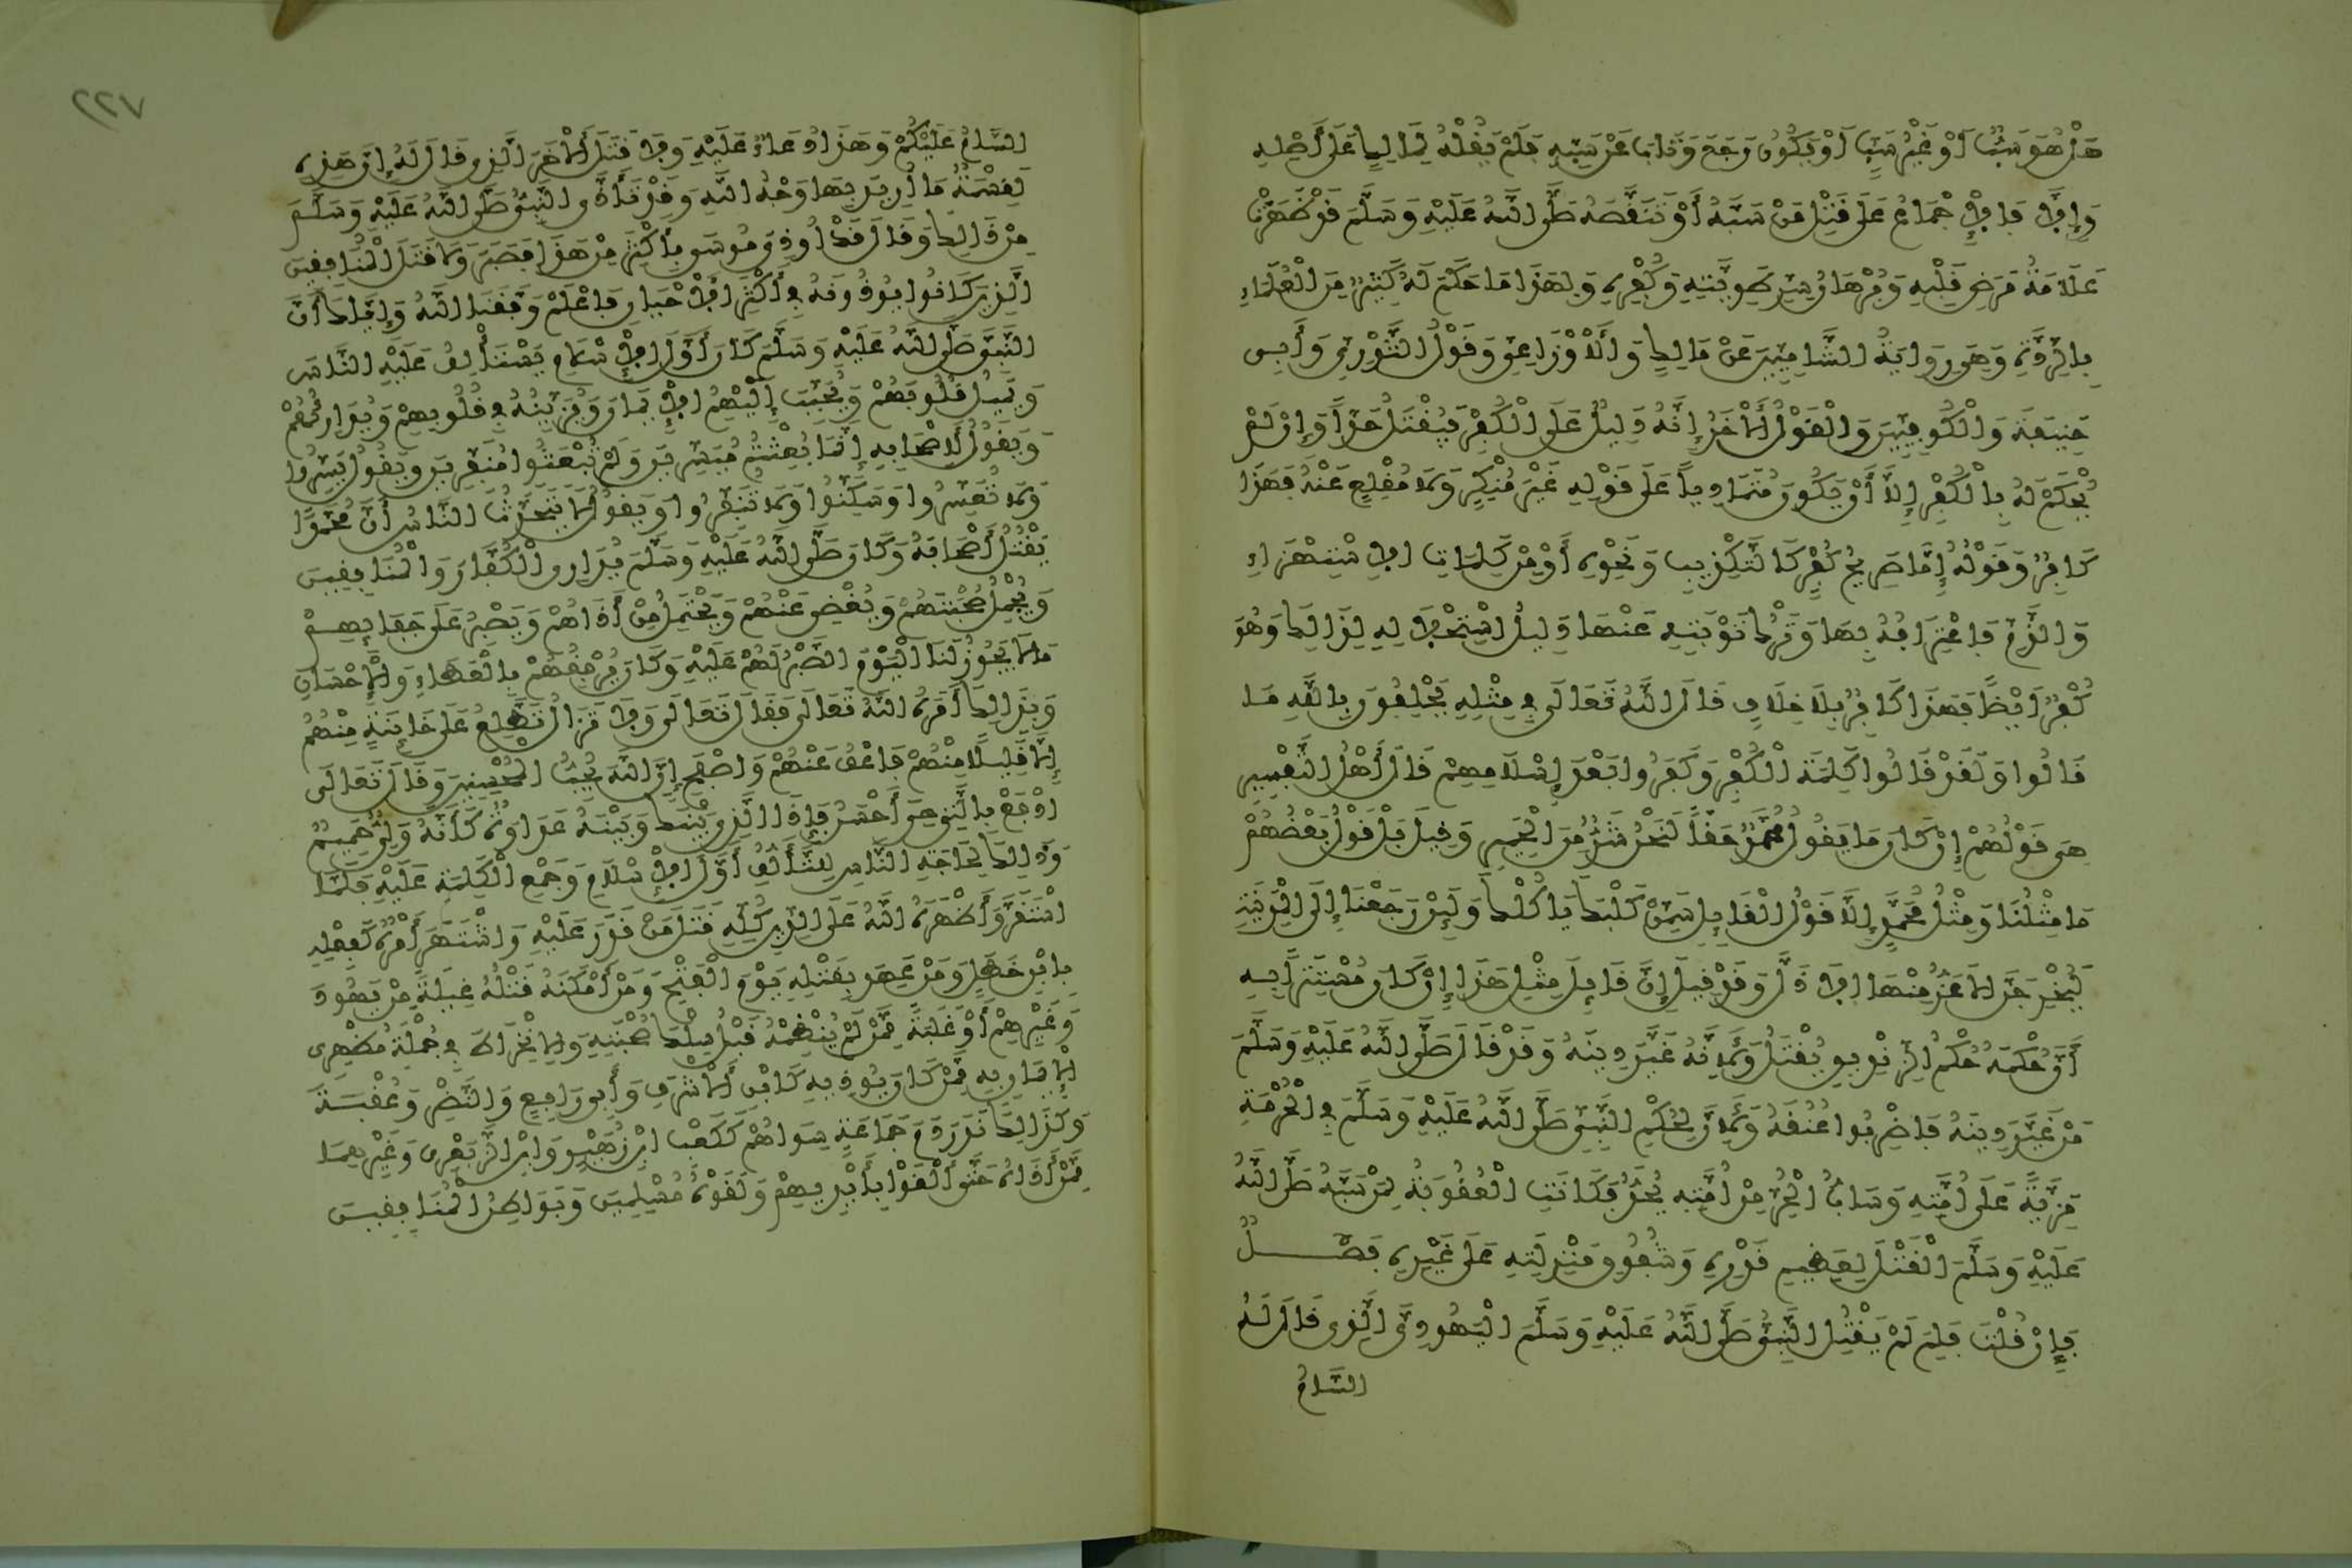 هَلْ هُوَ سَبٌّ أَوْ غَيْرُ سَبٍّ أَوْ يَكُونُ رَجَعَ وَتَابَ عَنْ سَبِّهِ فَلَمْ يَقُلْهُ لِمَالِكٍ عَلَى أَصْلِهِ
وَإِلَّا فَالْإِجْمَاعُ عَلَى قَتْلِ مَنْ سَبَّهُ أَوْ تَنَقَّصَهُ صَلَّى اللَّهُ عَلَيْهِ وَسَلَّمَ فَقَدْ ظَهَرَتْ
عَلَامَةُ مَرَضِ قَلْبِهِ وَبُرْهَانُ سِرِّ طَوِيَّتِهِ وَكُفْرِهِ وَلِهَذَا مَا حَكَمَ لَهُ كَثِيرٌ مِنَ الْعُلَمَاءِ
بِالرِّدَّةِ وَهِيَ رِوَايَةُ الشَّامِيِّينَ عَنْ مَالِكٍ وَالْأَوْزَاعِيِّ وَقَوْلُ الثَّوْرِيِّ وَأَبِي
حَنِيفَةَ وَالْكُوفِيِّينَ وَالْقَوْلُ الْآخَرُ إِنَّهُ دَلِيلٌ عَلَى الْكُفْرِ فَيُقْتَلُ حَدًّا وَإِنْ لَمْ
يُحْكَمْ لَهُ بِالْكُفْرِ إِلَّا أَنْ يَكُونَ مُتَمَادِياً عَلَى قَوْلِهِ غَيْرَ مُنْكِرٍ وَلَا مُقْلِعٍ عَنْهُ فَهَذَا
كَافِرٌ وَقَوْلُهُ إِمَّا صَرِيحُ كُفْرٍ كَالتَّكْذِيبِ وَنَحْوِهِ أَوْ مِنْ كَلِمَاتِ الْاِسْتِهْزَاءِ
وَالذَّمِّ فَاعْتِرَافُهُ بِهَا وَتَرْكُ تَوْبَتِهِ عَنْهَا دَلِيلُ اسْتِحْلَالِهِ لِذَلِكَ وَهُوَ
كُفْرٌ أَيْضًا فَهَذَا كَافِرٌ بِلَا خِلَافٍ قَالَ اللَّهُ تَعَالَى فِي مِثْلِهِ يَحْلِفُونَ بِاللَّهِ مَا
قَالُوا وَلَقَدْ قَالُوا كَلِمَةَ الْكُفْرِ وَكَفَرُوا بَعْدَ إِسْلَامِهِمْ قَالَ أَهْلُ التَّفْسِيرِ
هِيَ قَوْلُهُمْ إِنْ كَانَ مَا يَقُولُ مُحَمَّدٌ حَقّاً لَنَحْنُ شَرٌّ مِنَ الْحَمِيرِ وَقِيلَ بَلْ قَوْلُ بَعْضِهُمْ
مَا مِثْلُنَا وَمِثْلُ مُحَمَّدٍ إِلَّا قَوْلُ الْقَائِلِ سَمِّنْ كَلْبَكَ يَأْكُلْكَ وَلَئِنْ رَجَعْنَا إِلَى الْمَدِينَةِ
لَيُخْرِجَنَّ الْأَعَزُّ مِنْهَا الْأَذَلَّ وَقَدْ قِيلَ إِنَّ قَائِلَ مِثْلِ هَذَا إِنْ كَانَ مُسْتَتِراً بِهِ
أَنَّ حُكْمَهُ حُكْمُ الزِّنْدِيقِ يُقْتَلُ وَلِأَنَّهُ غَيَّرَ دِينَهُ وَقَدْ قَالَ صَلَّى اللَّهُ عَلَيْهِ وَسَلَّمَ
مَنْ غَيَّرَ دِينَهُ فَاضْرِبُوا عُنُقَهُ وَلِأَنَّ لِحُكْمِ النَّبِيِّ صَلَّى اللَّهُ عَلَيْهِ وَسَلَّمَ فِي الْحُرْمَةِ
مَزِيَّةً عَلَى أُمَّتِهِ وَسَابُّ الْحُرِّ مِنْ أُمَّتِهِ يُحَدُّ فَكَانَتِ الْعُقُوبَةُ لِمَنْ سَبَّهُ صَلَّى اللَّهُ
عَلَيْهِ وَسَلَّمَ الْقَتْلَ لِعَظِيمِ قَدْرِهِ وَشُفُوفِ مَنْزِلَتِهِ عَلَى غَيْرِهِ فَصْلٌ
فَإِنْ قُلْتَ فَلِمَ لَمْ يَقْتُلِ النَّبِيُّ صَلَّى اللَّهُ عَلَيْهِ وَسَلَّمَ الْيَهُودِيَّ الَّذِي قَالَ لَهُ
السَّامُ
٢٢٧
السَّامُ عَلَيْكُمْ وَهَذَا دُعَاءٌ عَلَيْهِ وَلَا قَتَلَ الْآخَرَ الَّذِي قَالَ لَهُ إِنَّ هَذِهِ
لَقِسْمَةٌ مَا أُرِيدَ بِهَا وَجْهُ اللَّهِ وَقَدْ تَأَذَّى النَّبِيُّ صَلَّى اللَّهُ عَلَيْهِ وَسَلَّمَ
مِنْ ذَلِكَ وَقَالَ قَدْ أُوذِيَ مُوسَى بِأَكْثَرَ مِنْ هَذَا فَصَبَرَ وَلَا قَتَلَ الْمُنَافِقِينَ
الَّذِينَ كَانُوا يُوذُونَهُ فِي أَكْثَرِ الْأَحْيَانِ فَاعْلَمْ وَفَّقَنَا اللَّهُ وَإِيَّاكَ أَنَّ
النَّبِيَّ صَلَّى اللَّهُ عَلَيْهِ وَسَلَّمَ كَانَ أَوَّلَ الْإِسْلَامِ يَسْتَأْلِفُ عَلَيْهِ النَّاسَ
وَيَمِيلُ قُلُوبَهُمْ وَيُحَبِّبُ إِلَيْهِمُ الْإِيمَانَ وَيُزَيِّنُهُ فِي قُلُوبِهِمْ وَيُدَارِئُهُمْ
وَيَقُولُ لِأَصْحَابِهِ إِنَّمَا بُعِثْتُمْ مُيَسِّرِينَ وَلَمْ تُبْعَثُوا مُنَفِّرِينَ وَيَقُولُ يَسِّرُوا
وَلَا تُعَسِّرُوا وَسَكِّنُوا وَلَا تُنَفِّرُوا وَيَقُولُ لَا يَتَحَدَّثُ النَّاسُ أَنَّ مُحَمَّدًا
يَقْتُلُ أَصْحَابَهُ وَكَانَ صَلَّى اللَّهُ عَلَيْهِ وَسَلَّمَ يُدَارِي الْكُفَّارَ وَالْمُنَافِقِينَ
وَيُجْمِلُ صُحْبَتَهُمْ وَيُغْضِي عَنْهُمْ وَيَحْتَمِلُ مِنْ أَذَاهُمْ وَيَصْبِرُ عَلَى جَفَائِهِمْ
مَا لَا يَجُوزُ لَنَا الْيَوْمَ الصَّبْرُ لَهُمْ عَلَيْهِ وَكَانَ يُرْفِقُهُمْ بِالْعَطَاءِ وَالْإِحْسَانِ
وَبِذَلِكَ أَمَرَهُ اللَّهُ تَعَالَى فَقَالَ تَعَالَى وَلَا تَزَالُ تَطَّلِعُ عَلَى خَائِنَةٍ مِنْهُمُ
إِلَّا قَلِيلًا مِنْهُمْ فَاعْفُ عَنْهُمْ وَاصْفَحْ إِنَّ اللَّهَ يُحِبُّ الْمُحْسِنِينَ وَقَالَ تَعَالَى
ادْفَعْ بِالَّتِي هِيَ أَحْسَنُ فَإِذَا الَّذِي بَيْنَكَ وَبَيْنَهُ عَدَاوَةٌ كَأَنَّهُ وَلِيٌّ حَمِيمٌ
وَذَلِكَ لِحَاجَةِ النَّاسِ لِلتَّأَلُّفِ أَوَّلَ الْإِسْلَامِ وَجَمْعِ الْكَلِمَةِ عَلَيْهِ فَلَمَّا
اسْتَقَرَّ وَأَظْهَرَهُ اللَّهُ عَلَى الدِّينِ كُلِّهِ قَتَلَ مَنْ قَدَرَ عَلَيْهِ وَاشْتَهَرَ أَمْرُهُ كَفِعْلِهِ
بِابْنِ خَطَلٍ وَمَنْ عَهِدَ بِقَتْلِهِ يَوْمَ الْفَتْحِ وَمَنْ أَمْكَنَهُ قَتْلُهُ غِيلَةً مِنْ يَهُودَ
وَغَيْرِهِمْ أَوْ غَلَبَةً مِمَّنْ لَمْ يَنْظِمْهُ قَبْلُ سِلْكُ صُحْبَتِهِ وَالْاِنْخِرَاطُ فِي جُمْلَةِ مُظْهِرِي
الْإِيمَانِ بِهِ مِمَّنْ كَانَ يُوذِيهِ كَابْنِ الْأَشْرَفِ وَأَبِي رَافِعٍ وَالنَّضْرِ وَعُقْبَةَ
وَكَذَلِكَ نَذَرَ دَمَ جَمَاعَةٍ سِوَاهُمْ كَكَعْبِ ابْنِ زُهَيْرٍ وَابْنِ الزِّبَعْرَى وَغَيْرِهِمَا
مِمَّنْ أَذَاهُ حَتَّى أَلْقَوْا بِأَيْدِيهِمْ وَلَقَوْهُ مُسْلِمِينَ وَبَوَاطِنُ الْمُنَافِقِينَ